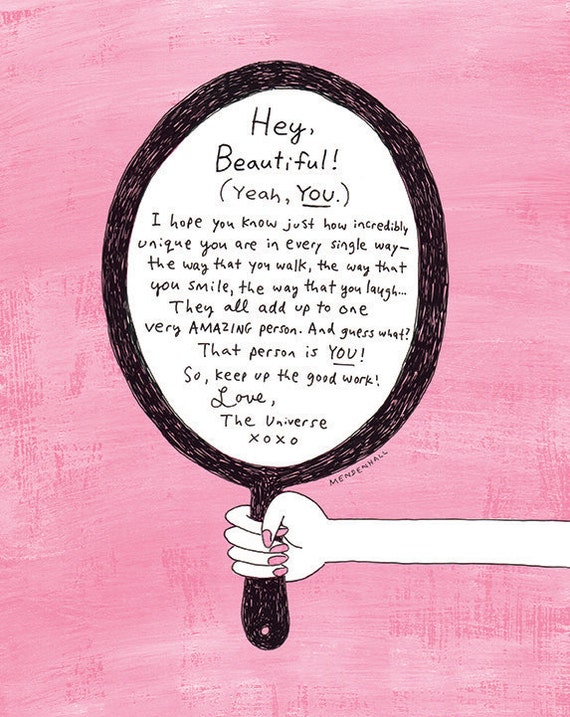 Hey,
Beautiful!
(Yeah, YOU.)
I hope you know just how incredibly
unique you are in every single way—
the way that you walk, the way that
you smile, the way that you laugh...
They all add up to one
very AMAZING person. And guess what?
That person is YOU!
So, keep up the good work!
Love,
The Universe
xoxo
MENDENHALL